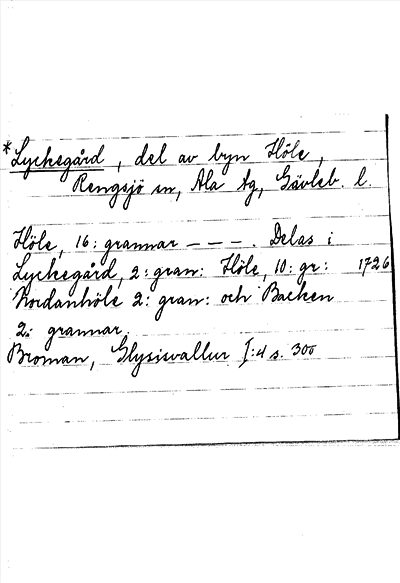 *Lyckegård, del av byn Höle,
Rengsjö sn, Ala hg, Gävleb. l.
Höle, 16: grannar - - - . Delas i
Lyckegård, 2: gran: Höle, 10: gr: 1726
Nordanhöle 2: gran: och Backen
2: grannar.
Broman, Glysisvallur I:4 s. 300